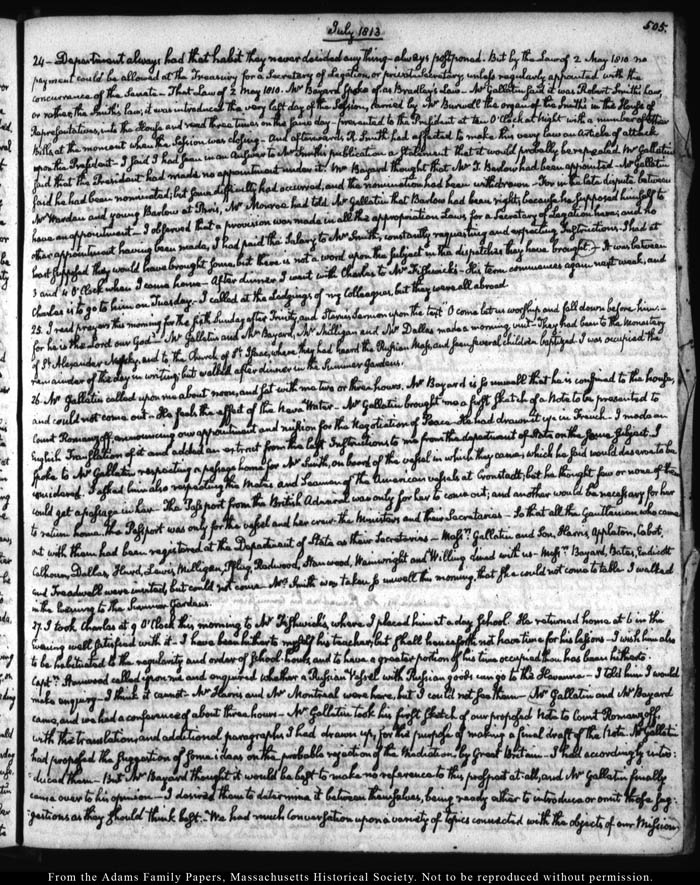 July 1813
505.
24 – Department always had that habit they never decided any thing – always postponed. But by the Law of 2 May 1810 no
payment could be allowed at the Treasury for a Secretary of Legation, or private Secretary, unless regularly appointed with the
concurrence of the Senate – That Law of 2 May 1810. Mr Bayard spoke of as Bradley's Law – Mr Gallatin said it was Robert Smith's Law,
or rather the Smith's law; it was introduced the very last day of the Session, carried by Mr Burwell the organ of the Smiths in the House of
Representatives, into the House and read three times on the same day – presented to the President at ten O'Clock at Night with a number of other
Bills at the moment when the Session was closing – And afterwards R. Smith had affected to make this very law an Article of attack
upon the President – I said I had seen in an Answer to Mr Smith's publication a Statement that it would probably be repealed. Mr Gallatin
said that the President had made no appointment under it. Mr Bayard thought that Mr T. Barlow had been appointed – Mr Gallatin
said he had been nominated; but some difficulty had occurred, and the nomination had been withdrawn – For in the late dispute between
Mr Warden and young Barlow at Paris, Mr Monroe had told Mr Gallatin that Barlow had been right, because he supposed himself to
have an appointment – I observed that a provision was made in all the appropriation Laws for a Secretary of Legation here; and no
other appointment having been made, I had paid the Salary to Mr Smith, constantly requesting and expecting Instructions. I had at
last supposed they would have brought some but there is not a word upon the subject in the dispatches they have brought) – It was between
3 and 4 O'Clock when I came home – After dinner I went with Charles to Mr Fishwick's – His term commences again next week, and
Charles is to go to him on Tuesday. – I called at the Lodgings of my Colleagues, but they were all abroad.
25. I read prayers this morning for the sixth Sunday after Trinity and Sermon upon the text "O come let us worship and fall down before him –
for he is the Lord our God". Mr Gallatin and Mr Bayard, Mr Milligan and Mr Dallas made a morning visit – They had been to the Monastery
of St Alexander Nefsky, and to the Church of St Isaac, where they had heard the Russian Mass, and seen several children baptized. I was occupied the
remainder of the day in writing; but walked after dinner in the Summer Gardens.
26. Mr Gallatin called upon me about noon, and sat with me two or three hours. Mr Bayard is so unwell that he is confined to the house,
and could not come out – He feels the effect of the Neva Water – Mr Gallatin brought me a first sketch of a Note to be presented to
Count Romanzoff, announcing our appointment and mission for the Negotiation of Peace – He had drawn it up in French – I made an
English Translation of it and added an extract from the last Instructions to me from the department of State on the same subject. I
spoke to Mr Gallatin respecting a passage home for Mr Smith, on board of the vessel in which they came, which he said would deserve to be
considered. I asked him also respecting the Mates and Seamen of the American vessels at Cronstadt; but he thought few or none of them
could get a passage in her – The Passport from the British Admiral was only for her to come out; and another would be necessary for her
to return home. The Passport was only for the vessel and her crew – the Ministers and their Secretaries – So that all the Gentlemen who came
out with them had been registered at the Department of State as their Secretaries – Messrs Gallatin and Son, Harris, Appleton, Cabot,
Calhoun, Dallas, Hurd, Lewis, Milligan, Redwood, Stanwood, Wainwright and Willing dined with us – Messrs Bayard, Bates, Endicott
and Treadwell were invited, but could not come. Mrs Smith was taken so unwell this morning, that she could not come to table – I walked
in the Evening to the Summer Gardens.
27. I took Charles at 9 O'Clock this morning to Mr Fishwick's, where I placed him at a day school. He returned home at 6 in the
evening well satisfied with it – I have been hitherto myself his teacher, but shall henceforth not have time for his lessons – I wish him also
to be habituated to the regularity and order of School-hours, and to have a greater portion of his time occupied than has been hitherto.
Captn Stanwood called upon me and enquired whether a Russian Vessel with Russian goods can go to the Havanna – I told him I would
make enquiry – I think it cannot – Mr Harris and Mr Montreal were here, but I could not see them – Mr Gallatin and Mr Bayard
came, and we had a conference of about three hours – Mr Gallatin took his first sketch of our proposed Note to Count Romanzoff,
with the translation, and additional paragraphs I had drawn up, for the purpose of making a final draft of the Note. Mr Gallatin
had proposed the suggestion of some ideas on the probable rejection of the Mediation by Great Britain – I had accordingly intro:
:duced them – But Mr Bayard thought it would be best to make no reference to this prospect at all, and Mr Gallatin finally
came over to his opinion – I desired them to determine it between themselves, being ready either to introduce or omit those sug:
:gestions as they should think best. – We had much Conversation upon a variety of topics connected with the objects of our Mission
From the Adams Family Papers, Massachusetts Historical Society. Not to be reproduced without permission.